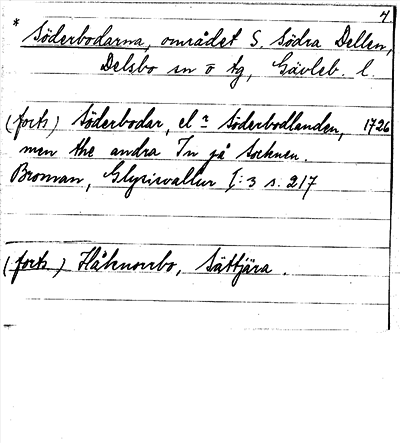 4
* Söderbodarna, området S. Södra Dellen,
Delsbo sn o tg, Gävleb. l.
(forts) Söderbodar, el r Söderbodlanden, 1726
men the andra In på Socknen.
Broman, Glysisvallur I:3 s. 217
(forts) Håknorrbo, Sättjära.